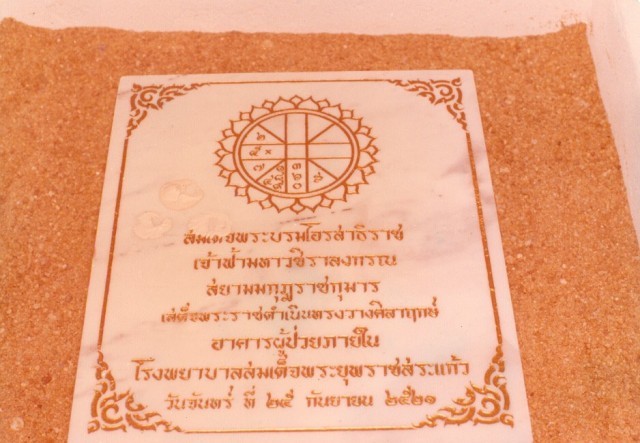 สมเด็จพระบรมโอรสาธิราช
เจ้าฟ้ามหาวชิราลงกรณ
สยามมกุฎราชกุมาร
เสด็จพระราชดำเนินทรงวางศิลาฤกษ์
อาคารผู้ป่วยภายใน
โรงพยาบาลสมเด็จพระยุพราชสระแก้ว
วันจันทร์ ที่ ๒๕ กันยายน ๒๕๒๑